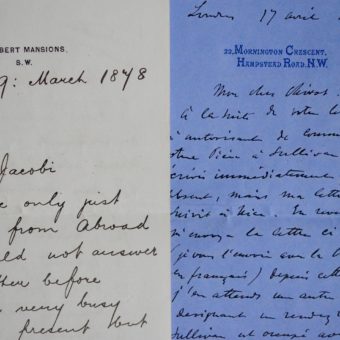 BERT MANSIONS,
S.W.
9: March 1878
Jacobi
e only just
from Abroad
ld not answer
ter before
very busy
present but
London 17 avril
22, MORNINGTON CRESCENT,
HAMPSTEAD ROAD, N.W.
Mon cher
à la suite de votre
autorisant de
Pièce à Sullivan
écrivis immédiatement
absent, mais ma lettre
suivit à Nice.
la lettre ci
en français) depuis cette
j'en attends un autre
désignant un rendez
Sullivan et occupé